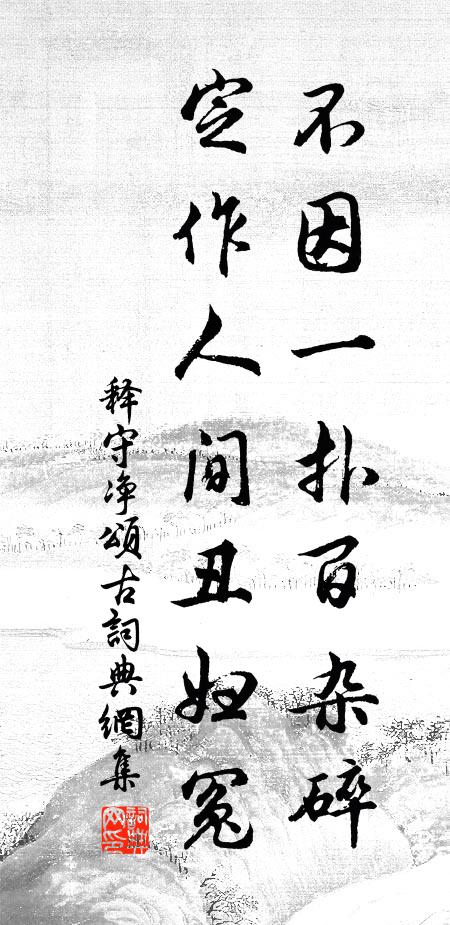 不因一扑百杂碎
定作人间丑妇冤
释守净頌古詞典網集